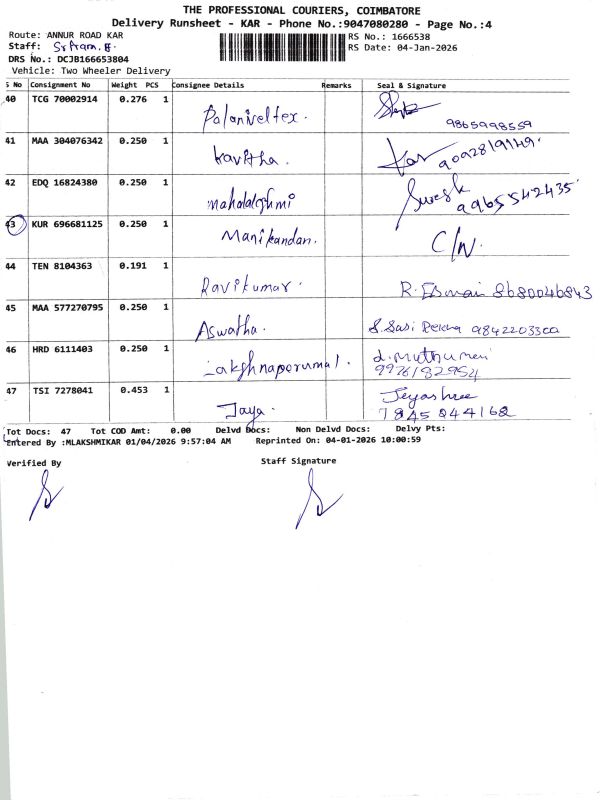 THE PROFESSIONAL COURIERS, COIMBATORE
Delivery Runsheet - KAR - Phone No.:9047080280 - Page No.:4
Route: ANNUR ROAD KAR
RS No.: 1666538
Staff: Sriram.
RS Date: 04-Jan-2026
DRS No.: DCJB166653804
Vehicle: Two Wheeler Delivery
S No Consignment No Weight PCS Consignee Details Remarks Seal & Signature
40 TCG 70002914 0.276 1 Palaniveltex. 9865998559
41 MAA 304076342 0.250 1 Kavitha. Kav
42 EDQ 16824380 0.250 1 mahalalghmi Suresh 9965542435
43 KUR 696681125 0.250 1 Manikandan. C/N.
44 TEN 8104363 0.191 1 Ravikumar. R. 8680046843
45 MAA 577270795 0.250 1 Aswatha. S. Sasi
46 HRD 6111403 0.250 1 Lakshnaperumal. d. muthumani
47 TSI 7278041 0.453 1 Jaya. Jeyashree
7845844168
Tot Docs: 47 Tot COD Amt: 0.00 Delvd Docs: Non Delvd Docs: Delvy Pts:
Entered By :MLAKSHMIKAR 01/04/2026 9:57:04 AM Reprinted On: 04-01-2026 10:00:59
Verified By Staff Signature